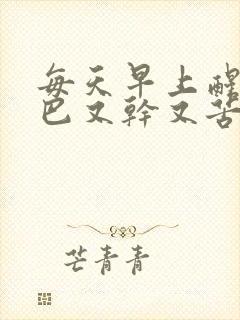 每天早上醒
巴又幹又苦
芒青青